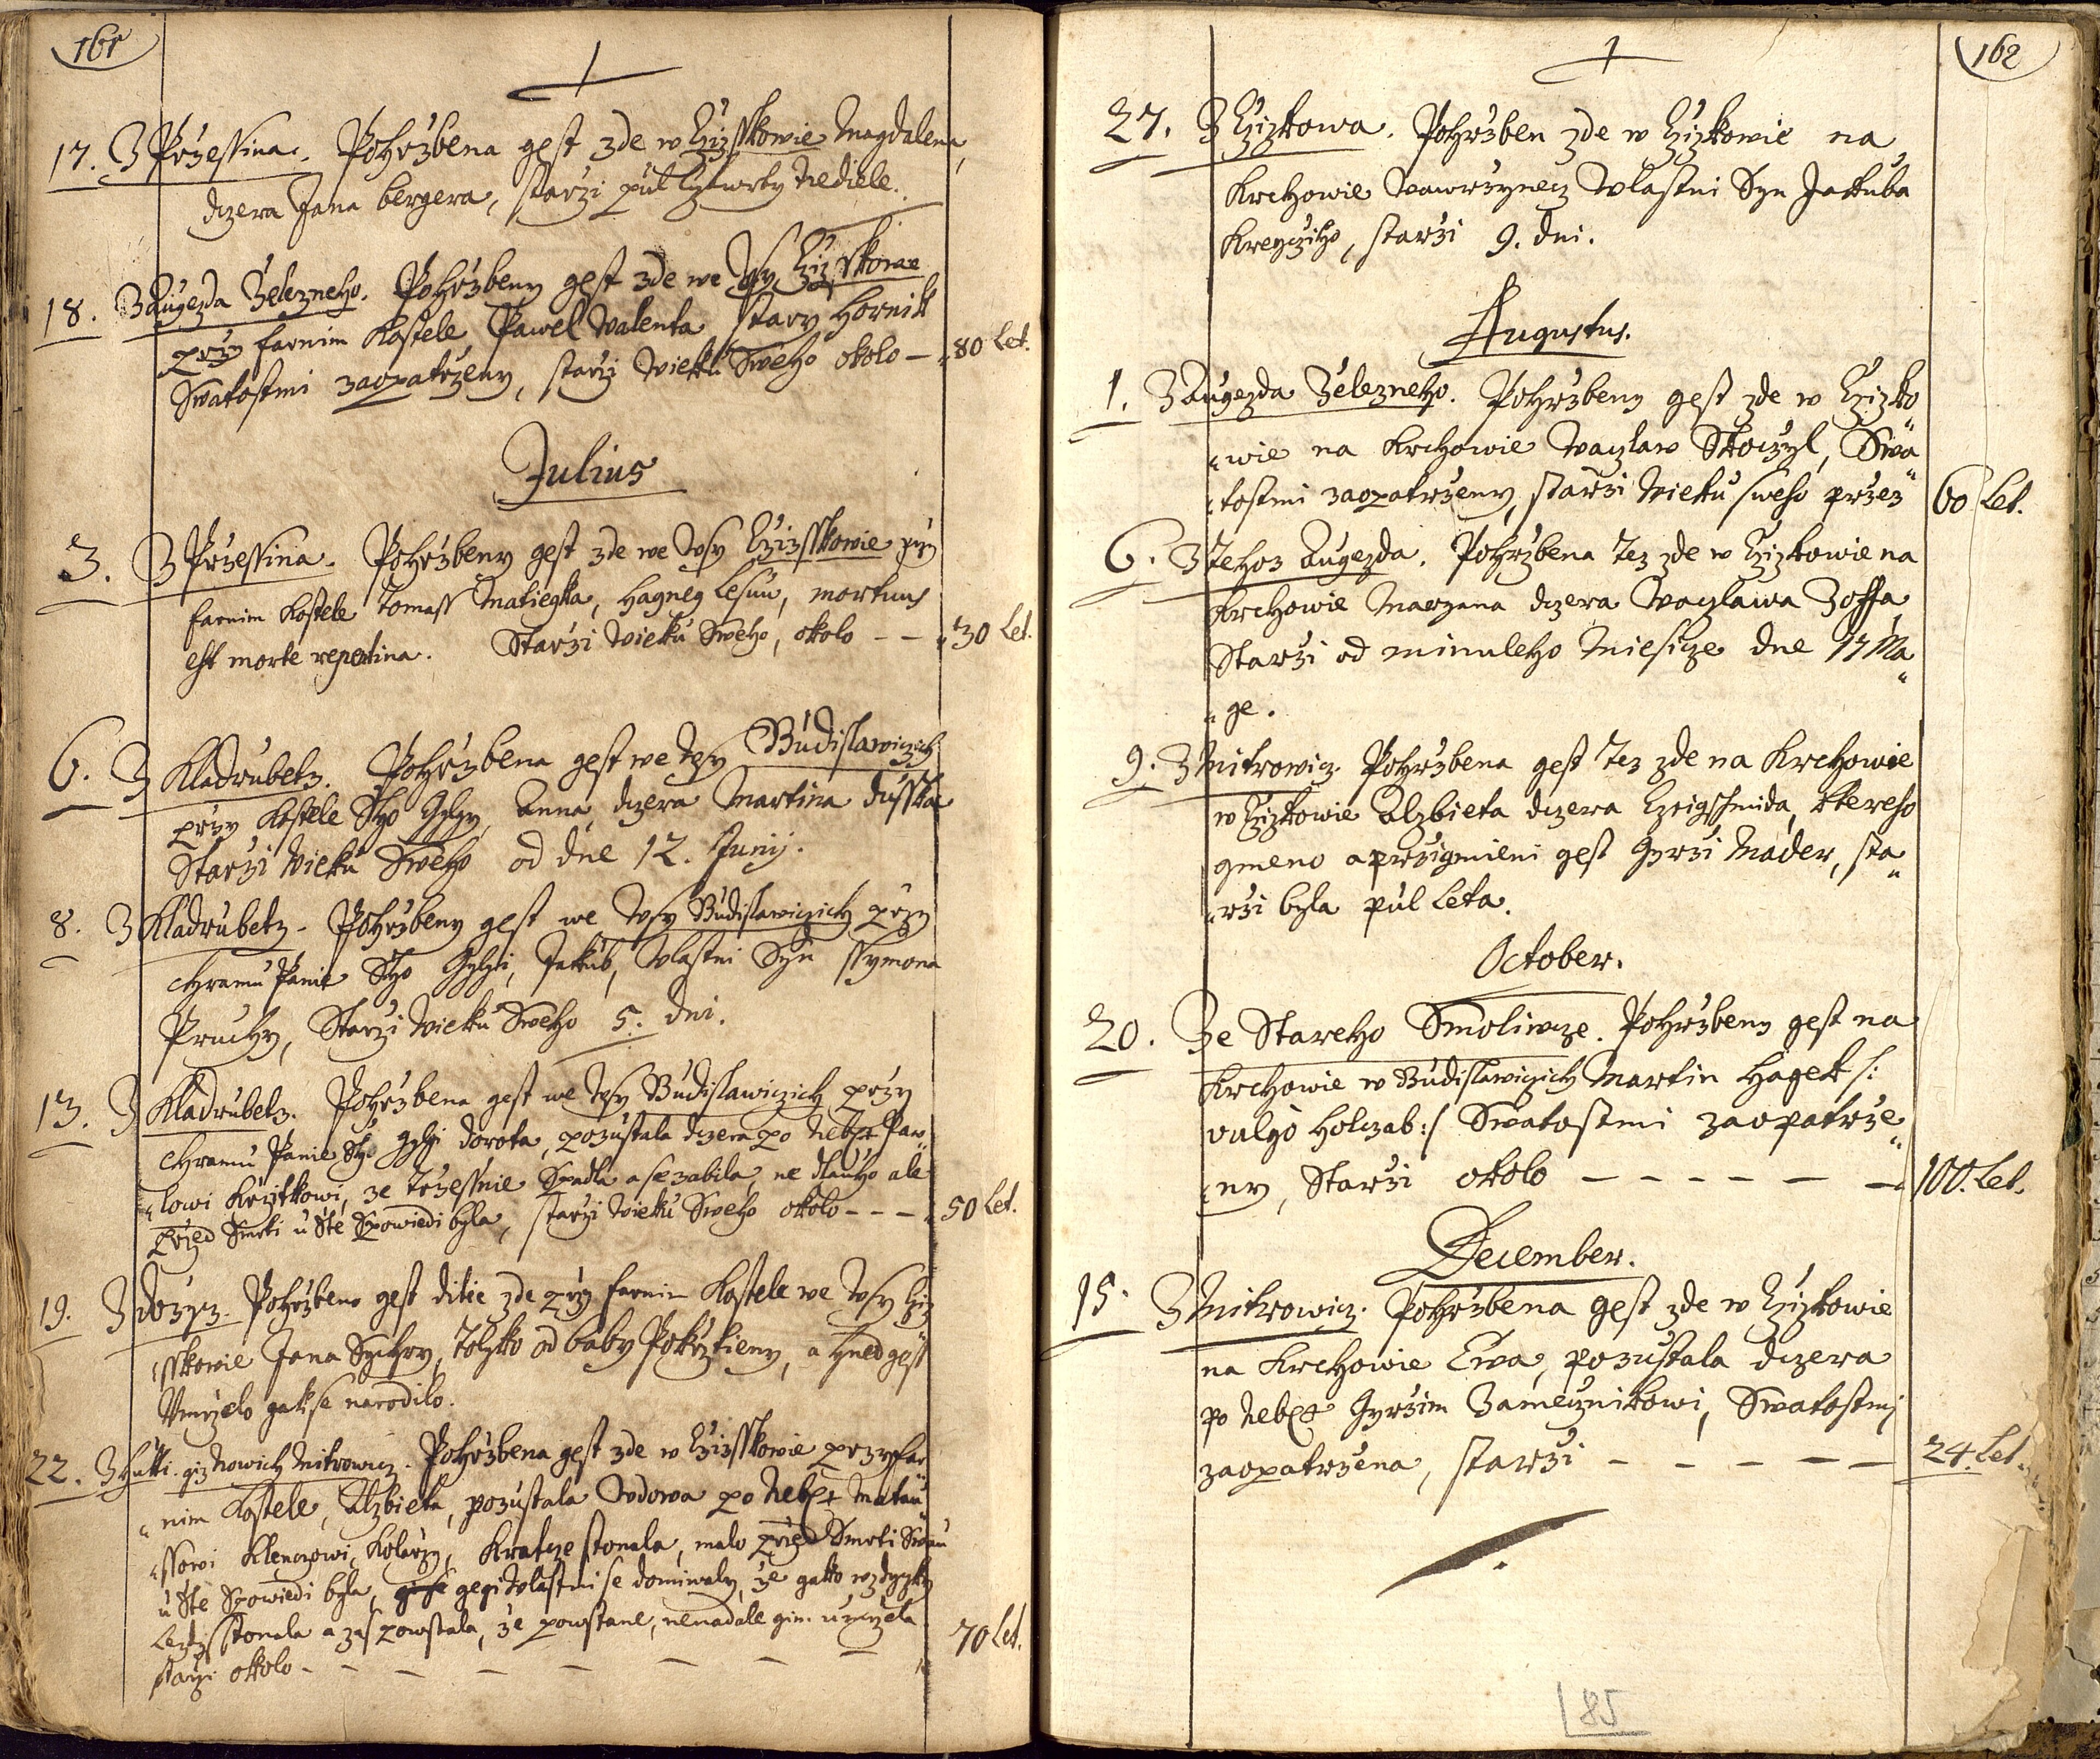 161
17. Z Przessina. Pohrzbena gest zde w Czizsskowie Magdalena,
dczera Jana bergera, starzi pul cztwrty Nediele.
18. Z Augezda Zelezneho. Pohrzbeny gest zde we wsy Czizskowie
przy farnim Kostele Pawel Valenta stary Hornik
Swatostmi zaopatrzeny, starzi wieku Sweho okolo – „80 Let.
Julius
3. Z Przessina. Pohrzbeny gest zde we wsy Czizsskowie przy
farnim Kostele Tomass Matiegka, Hagneg Lesuu, mortuus
est morte repentina. Starzi wieku Sweho, okolo – – „30 Let.
6. Z Kladrubetz. Pohrzbena gest we wsy Budislawiczich
przy Kostele Sho Gylgy, Anna, dczera Martina dusska
Starzi wieku Sweho od dne 12. Junij.
8. Z Kladrubetz. Pohrzbeny gest we wsy Budislawiczich przy
Chramu Panie Sho Gylgi, Jakub, Vlastni Syn Ssymona
Pruchy, Starzi wieku Sweho 5. dni.
13. Z Kladrubetz. Pohrzbena gest we wsy Budislawiczich przy
Chramu Panie Sho Gylgi dorota, pozustala dczera po Neb Paw„
„lowi Krzitkowi, ze Trzessnie Spadla a se zabila, ne dlauho ale
przed Smrti u Ste Spowiedi byla, starzi wieku Sweho okolo – – – „50 Let.
19. Z Pohrzbeno gest ditie zde przy farnim Kostele we wsy Cziz„
„sskowie Jana Sychry, tolyko od baby Pokrztieny, a hned gest
Vmrzelo gak se narodilo.
22. Z Huti giz Nowich Mitrowicz. Pohrzbena gest zde w Czizsskowie przy far„
„nim Kostele, Alzbieta, pozustala Vdowa po Neb Matau„
„ssowi Klenczowi, Kolarzy, Kratcze stonala, malo przed Smrti Swau
u Ste Spowiedi byla, gegi Vlastni se domiwaly, ze gako wzdyczky
stonala a zas powstala, ze powstane, nenadale gim umrzela
starzi okolo – – – – – – – „ 70 Let.
162
27. Z Czizkowa. Pohrzben zde w Czizkowie na
Krchowie Vawrzynecz Vlastni Syn Jakuba
Kregcziho, starzi 9. dni.
Augustus.
1. Z Augezda Zelezneho. Pohrzbeny gest zde w Czizko„
„wie na Krchowie Vaczlaw Skoczyl, Swa„
„tostmi zaopatrzeny, starzi Wieku sweho przes 60 Let.
6. Z Tehoz Augezda. Pohrzbena tez zde w Czizkowie na
Krchowie Marzana dczera Vaczlawa Zoffa,
Starzi od minuleho Miesicze dne 17 Ma„
„ge.
9. Z Mitrowicz. Pohrzbena gest tez zde na Krchowie
w Czizkowie Alzbieta dczera Czeigschmida, ktereho
gmeno a przigmieni gest Gyrzi Mader, sta„
„rzi byla pul Leta.
October.
20. Ze Stareho Smoliwcze. Pohrzbeny gest na
Krchowie w Budislawiczich Martin Hagek /:
vulgo Holczab:/ Swatostmi zaopatrze„
„ny, Starzi okolo – – – – – – 100. Let.
December.
15. Z Mitrowicz. Pohrzbena gest zde w Czizkowie
na Krchowie Ewa, pozustala dczera
po Neb Gyrzim Zamecznikowi, Swatostmi
zaopatrzena, starzi – – – – – 24. Let.
85